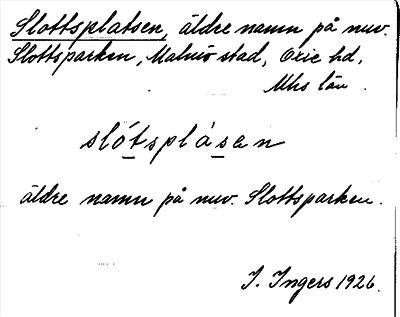 Slottsplatsen, äldre namn på nuv.
Slottsparken, Malmö stad, Oxie hd,
Mhs län.
slótsplásen
äldre namn på nuv. Slottsparken.
I. Ingers 1926.